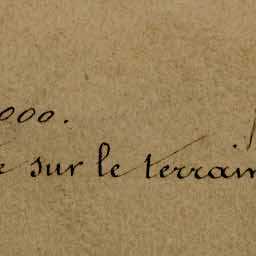 000.
e sur le terrain